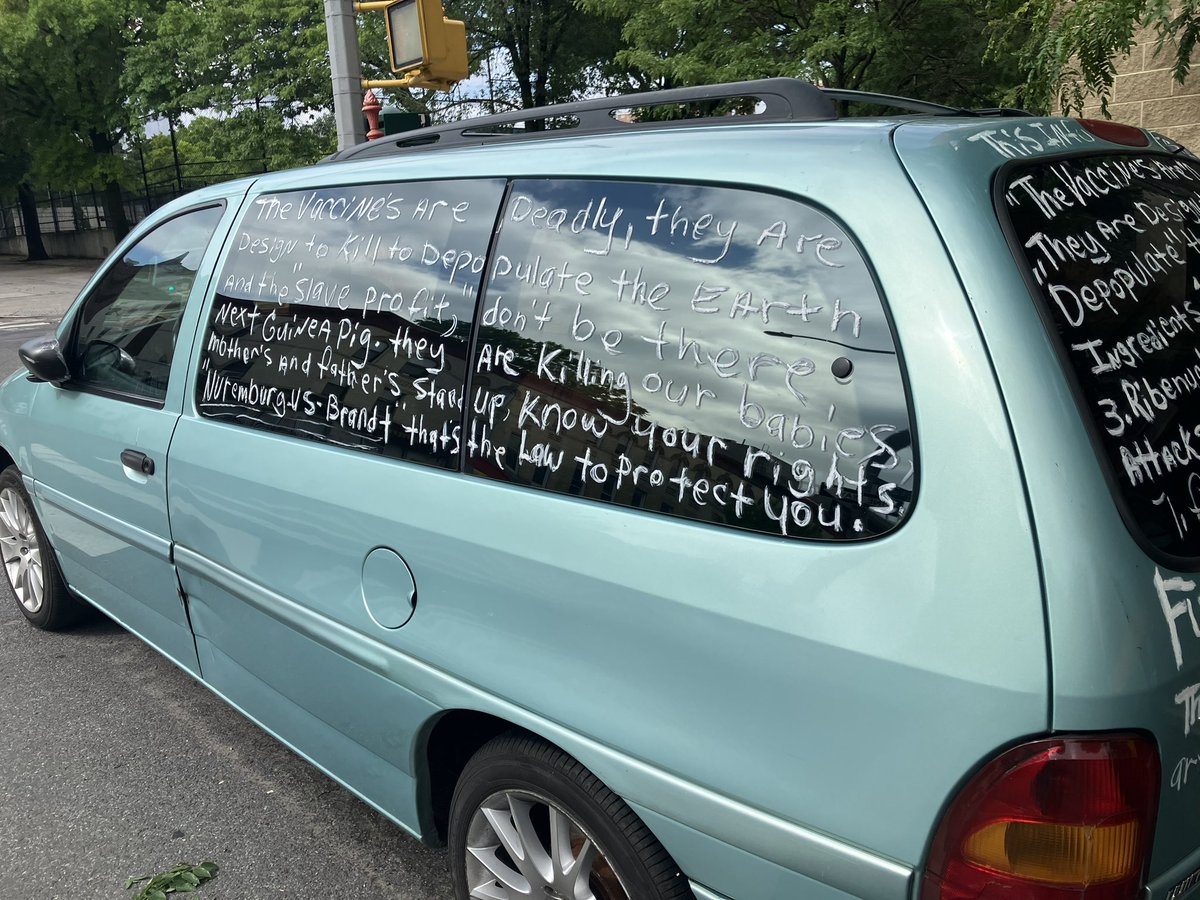 The Vaccine's Are Deadly, they Are
Design to Kill to Depopulate the EArth
And the "Slave profit," don't be there
Next Guinea Pig. they Are Killing our babies
"mother's And father's Stand up, Know your rights
"Nuremburg-VS-Brandt" that's the Law to protect you.
This
"The Vaccines Are
"They Are Design
"Depopulate"
Ingredients
3. Ribenu
Attacks